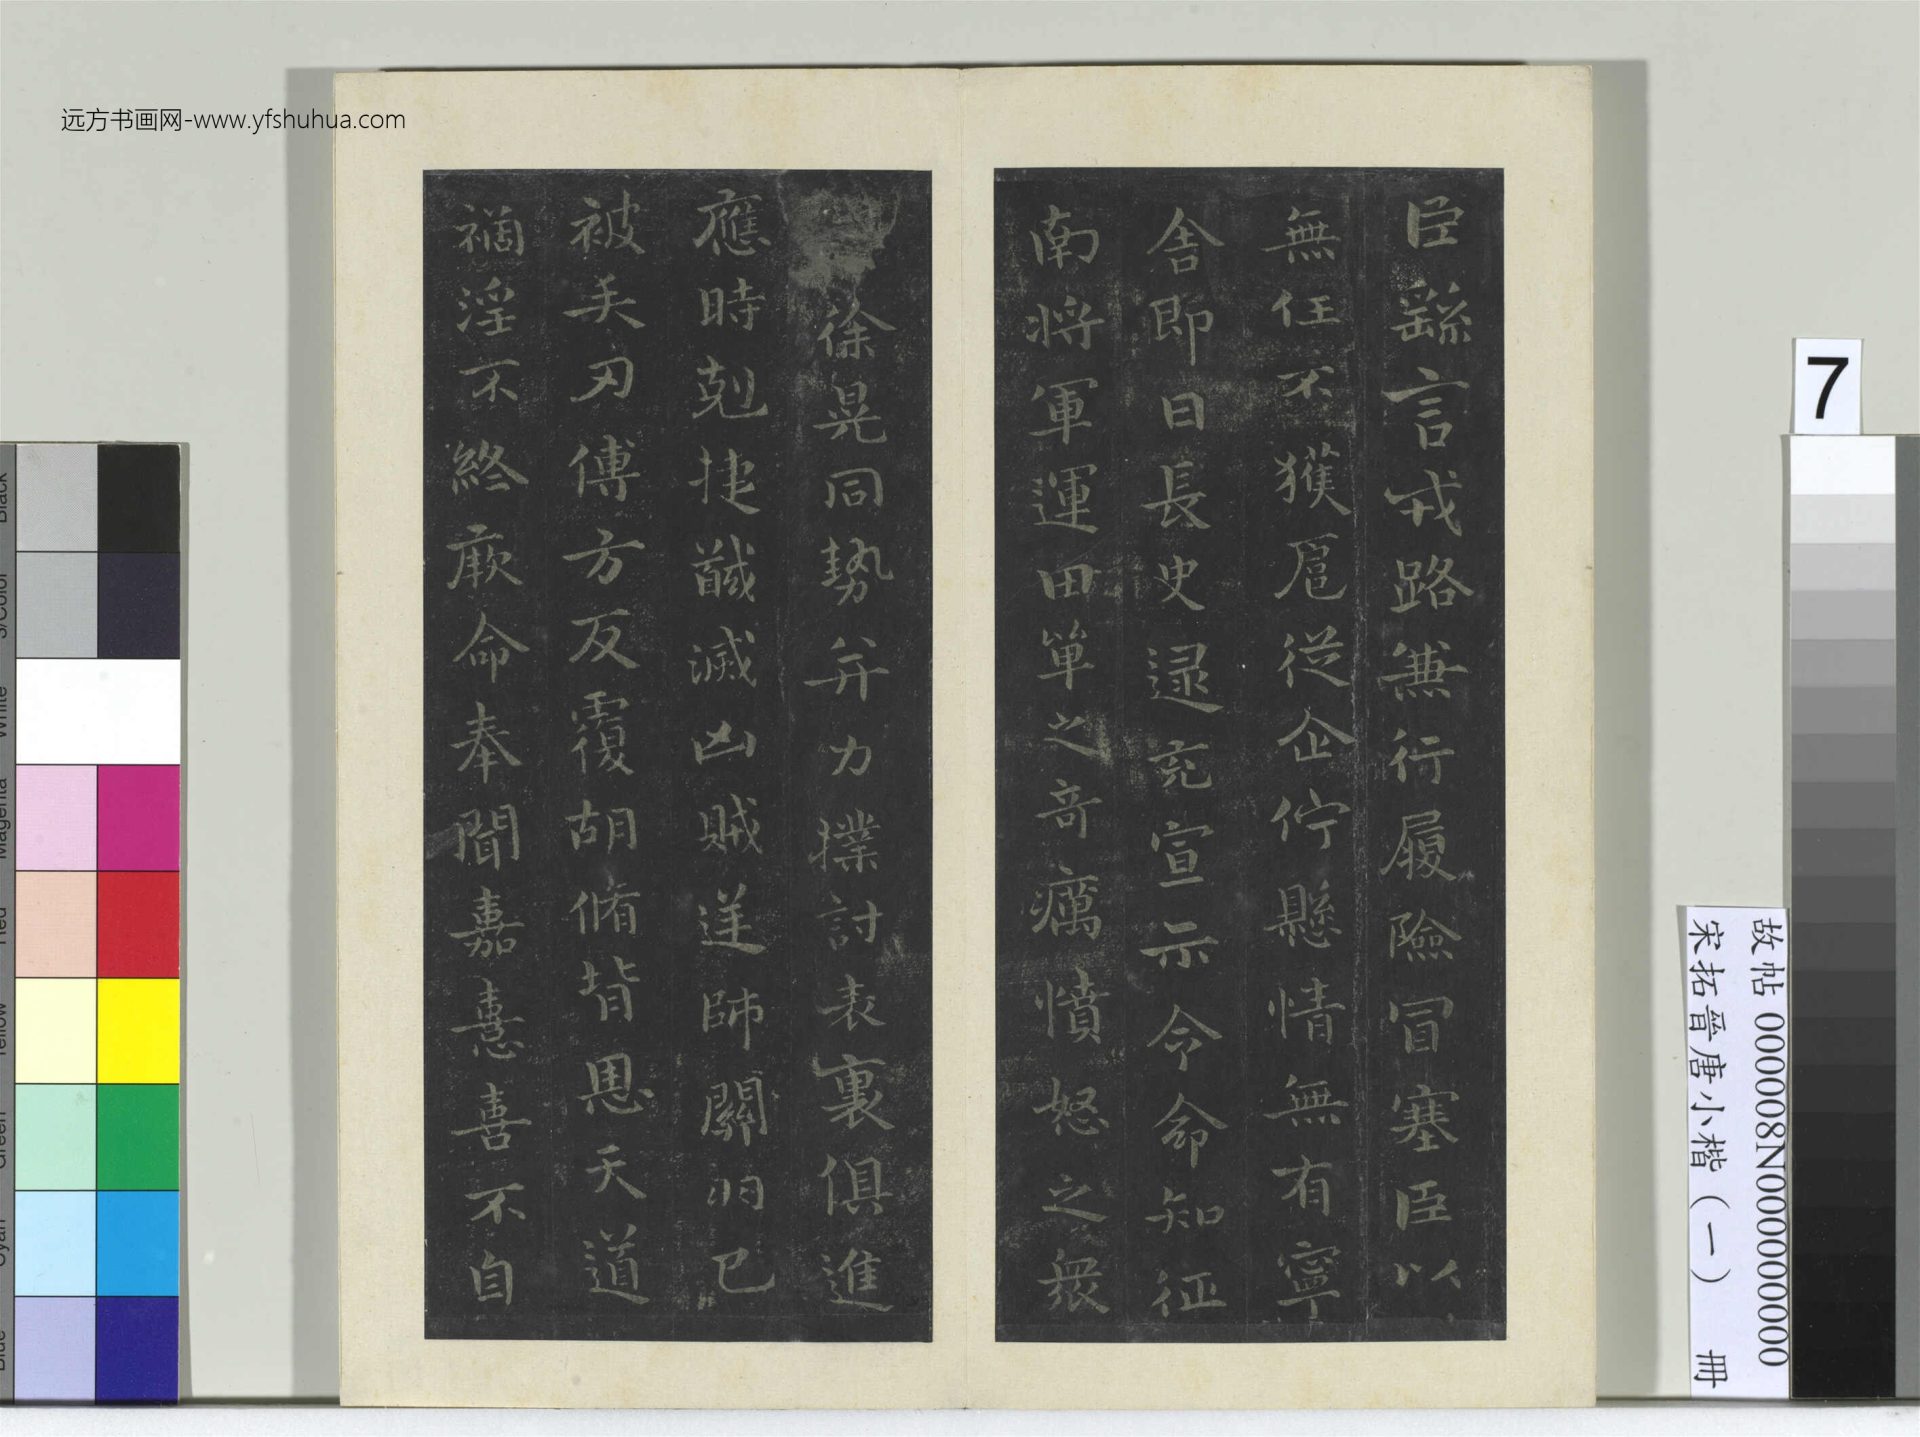 远方书画网-www.yfshuhua.com
臣繇言戎路兼行履險冒塞臣以
無任不獲扈從企佇懸情無有寧
舍即日長史逯充宣示令命知征
南將軍運田單之奇厲憤怒之衆
徐晃同勢并力撲討表裏俱進
應時剋捷馘滅凶賊逆帥關羽已
被矢刃傅方反覆胡脩背恩天道
禍淫不終厥命奉聞嘉憙喜不自
7
故帖 000008N000000000
宋拓晉唐小楷（一） 冊
Black
3/Color
White
Magenta
Red
Yellow
Green
Cyan
Blue